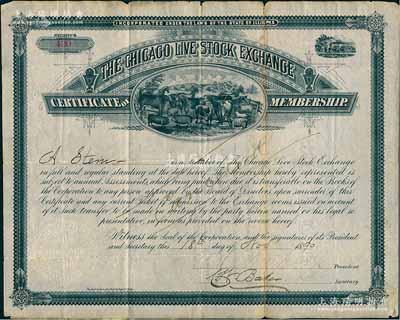 INCORPORATED UNDER THE LAW OF THE STATE OF ILLINOIS
THE CHICAGO LIVE STOCK EXCHANGE
CERTIFICATE OF MEMBERSHIP.
A. Stern
is a member of The Chicago Live Stock Exchange
in full and regular standing at the date hereof. The Membership hereby represented is
subject to annual Assessments, which being paid when due it is transferable on the Books of
the Corporation to any person approved by the Board of Directors upon surrender of this
Certificate and any current ticket of admission to the Exchange rooms issued on account
of it, such transfer to be made in writing by the party herein named or his legal re-
presentative, in form as provided on the reverse hereof.
Witness the Seal of the Corporation and the signatures of its President
and Secretary this 18th day of 1890
President
Baker
Secretary
上海阳明拍卖